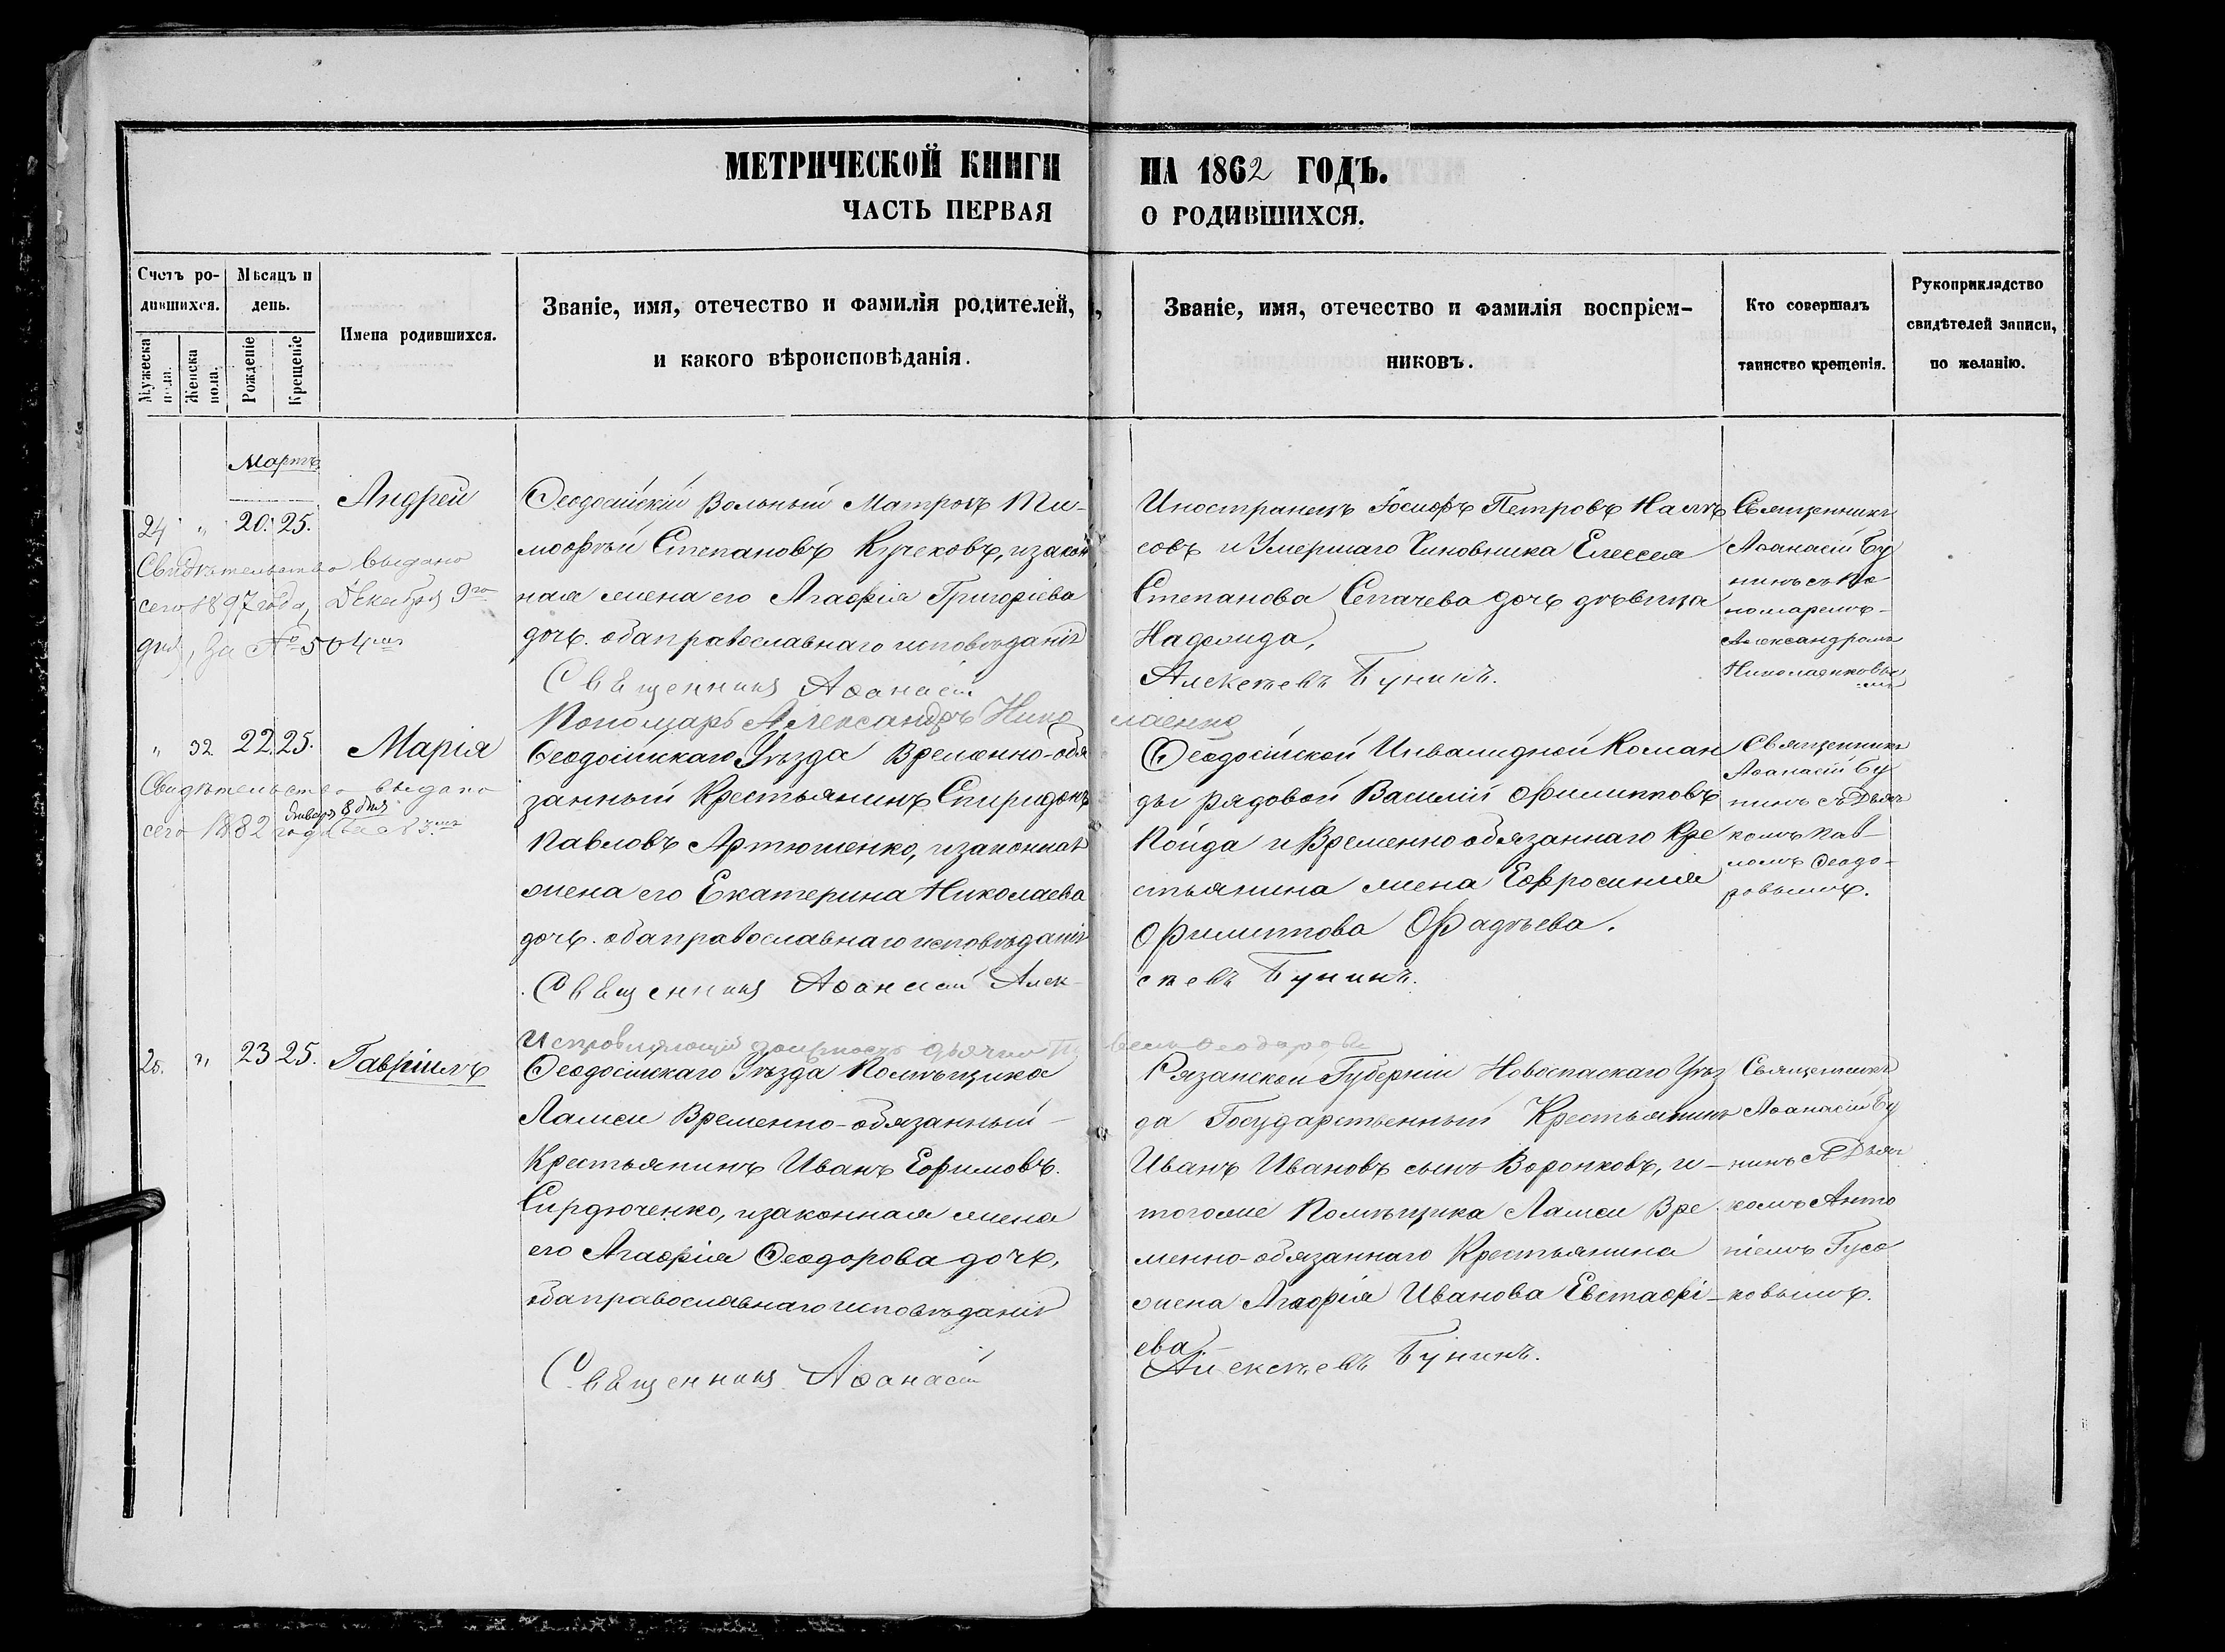 МЕТРИЧЕСКОЙ КНИГИ НА 1862 ГОДЪ.
ЧАСТЬ ПЕРВАЯ О РОДИВШИХСЯ.
Счетъ ро-
дившихся.
Мужеска
пола.
Женска
пола.
Мѣсяцъ и
день.
Рожденіе
Крещеніе
Имена родившихся.
Званіе, имя, отечество и фамилія родителей,
и какого вѣроисповѣданія.
Званіе, имя, отечество и фамилія воспріем-
никовъ.
Кто совершалъ
таинство крещенія.
Рукоприкладство
свидѣтелей записи,
по желанію.
Мартъ
24 " 20. 25.
Андрей
Свидѣтельство выдано
сего 1897 года, Декабря 9го
дня, за № 504мъ
Ѳеодосійскій Вольный Матрозъ Ти-
моѳей Степановъ Кучековъ, и закон
ная жена его Агафія Григоріева
дочь. оба православнаго исповѣданія
Священникъ Аѳанасій
Пономарь Александръ Нико
Иностранецъ Іосифъ Петровъ
совъ и Умершаго Чиновника Елессея
Степанова Сепачева дочь дѣвица
Надежда,
Алексѣевъ Бунинъ.
лаенко
Священникъ
Аѳанасій Бу
нинъ съ По
номаремъ
Александромъ
Николаенковы
мъ
" 32 22. 25.
Марія
Свидѣтельство выдано
Января 8 дня
сего 1882 года
Ѳеодосійскаго Уѣзда Временно-обя
занный Крестьянинъ Спиридонъ
Павловъ Артюшенко, и законная
жена его Екатерина Николаева
дочь. оба православнаго исповѣданія
Священникъ Аѳанасій Алек-
Исправляющій должность дьячка Па
Ѳеодосійской Инвалидной Коман
ды рядовой Василій Филипповъ
Пойда и Временно обязаннаго Кре
стьянина жена Ефросинія
Филиппова Фадѣева.
сѣевъ Бунинъ.
велъ Ѳеодоровъ
Священникъ
Аѳанасій Бу
нинъ съ Дьяч
комъ Пав-
ломъ Ѳеодо-
ровымъ.
25. " 23 25.
Гавріилъ
Ѳеодосійскаго Уѣзда Помѣщика
Ламси Временно-обязанный
Крестьянинъ Иванъ Ефимовъ
Сирдюченко, и законная жена
его Агафія Ѳеодорова дочь,
оба православнаго исповѣданія
Священникъ Аѳанасій
Рязанской Губерніи Новоспаскаго Уѣз
да Государственный Крестьянинъ
Иванъ Ивановъ сынъ Воронковъ, и
тогоже Помѣщика Ламси Вре
менно-обязаннаго Крестьянина
жена Агафія Иванова Евстафі-
ева
Алексѣевъ Бунинъ.
Священникъ
Аѳанасій Бу
нинъ съ Дьяч
комъ Анто
ніемъ Гусо
ковымъ.